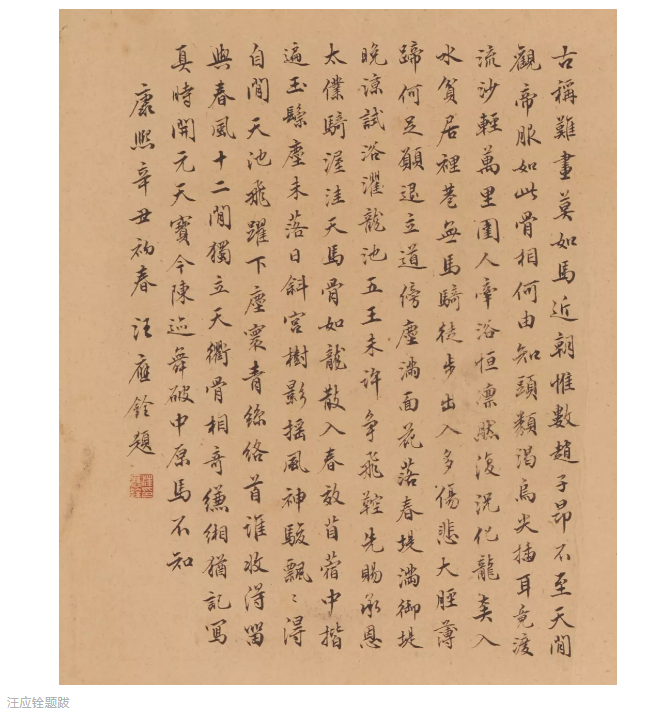 古稱難畫莫如馬近朝惟數趙子昂不至天閒
觀帝服如此骨相何由知頭顱渴烏尖插耳竟渡
流沙輕萬里圉人牽浴恒凜然復況化龍奔入
水貧居裡巷無馬騎徒步出入多傷悲大腿薄
蹄何足願退立道傍塵滿面花落春堤滿御堤
晚涼試浴濯龍池五王未許爭飛鞚先賜承恩
太僕騎渥洼天馬骨如龍散入春放苜蓿中揩
遍玉鬃塵未落日斜宮樹影搖風神駿飄〻得
自閒天池飛躍下塵寰青絲絡首誰收得留
與春風十二閒獨立天衢骨相奇縑緗猶記寫
真時開元天寶今陳迹舞破中原馬不知
康熙辛丑初春汪應銓題
汪应铨题跋